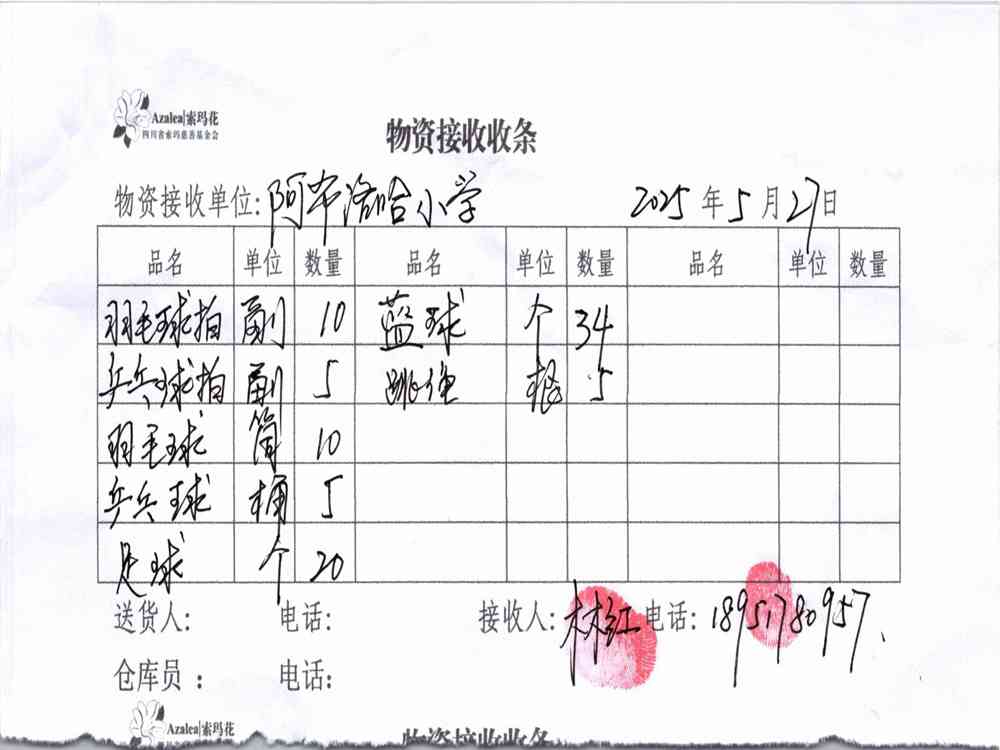 Azalea|索玛花
四川省索玛慈善基金会
物资接收收条
物资接收单位:阿毕洛哈小学 2025 年 5 月 27 日
品名 单位 数量 品名 单位 数量 品名 单位 数量
羽毛球拍 副 10 蓝球 个 34
乒乓球拍 副 5 跳绳 根 5
羽毛球 筒 10
乒乓球 桶 5
足球 个 20
送货人: 电话: 接收人: 林红 电话: 18951780957
仓库员 : 电话:
Azalea|索玛花
物资接收收条